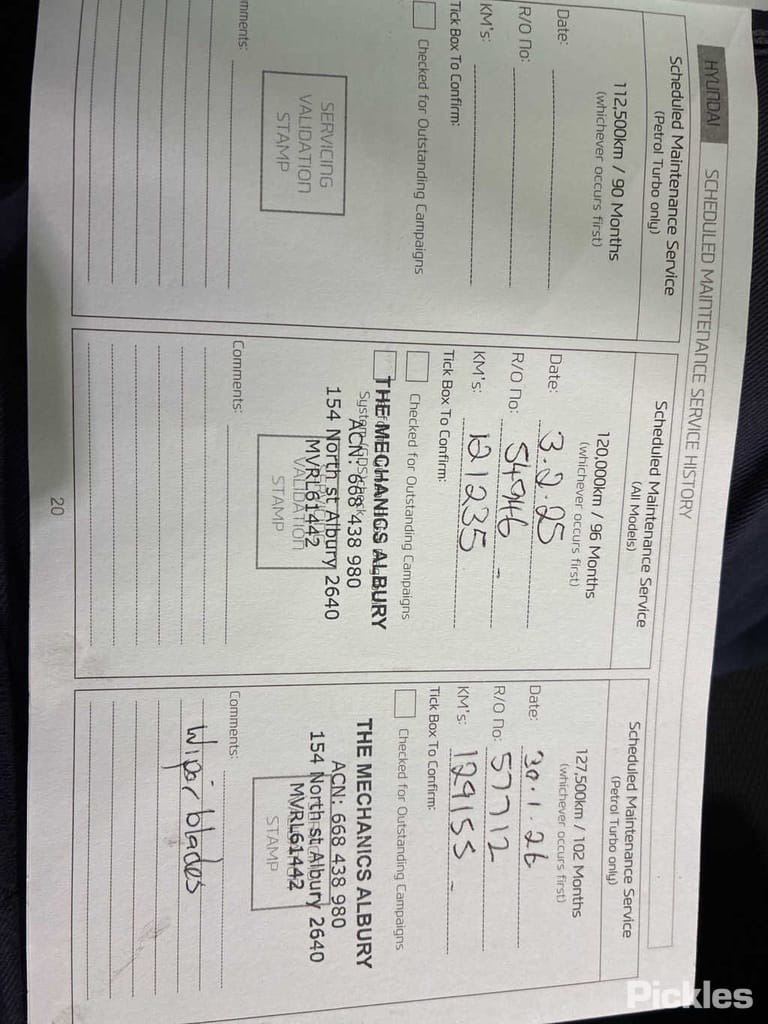 HYUNDAI SCHEDULED MAINTENANCE SERVICE HISTORY
Scheduled Maintenance Service
(Petrol Turbo only)
112,500km / 90 Months
(whichever occurs first)
Date:
R/O No:
KM's:
Tick Box To Confirm:
Checked for Outstanding Campaigns
SERVICING
VALIDATION
STAMP
mments:
Scheduled Maintenance Service
(All Models)
120,000km / 96 Months
(whichever occurs first)
Date: 3.2.25
R/O No: 54946
KM's: 121235
Tick Box To Confirm:
Checked for Outstanding Campaigns
THE MECHANICS ALBURY
System (GDS) check
ACN: 668 438 980
154 North st Albury 2640
MVRL61442
VALIDATION
STAMP
Comments:
Scheduled Maintenance Service
(Petrol Turbo only)
127,500km / 102 Months
(whichever occurs first)
Date: 30.1.26
R/O No: 57712
KM's: 129155
Tick Box To Confirm:
Checked for Outstanding Campaigns
THE MECHANICS ALBURY
ACN: 668 438 980
154 North st Albury 2640
MVRL61442
STAMP
Comments:
Wiper blades
20
Pickles